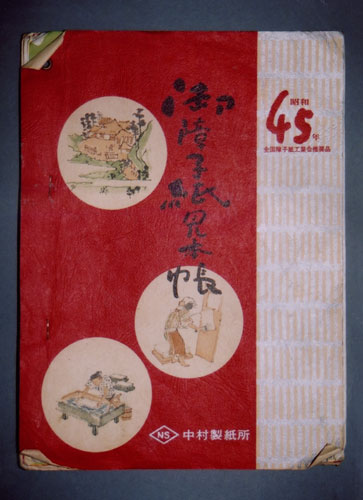 御障子紙見本帖
昭和
45年
全国障子紙工業会推奨品
NS 中村製紙所